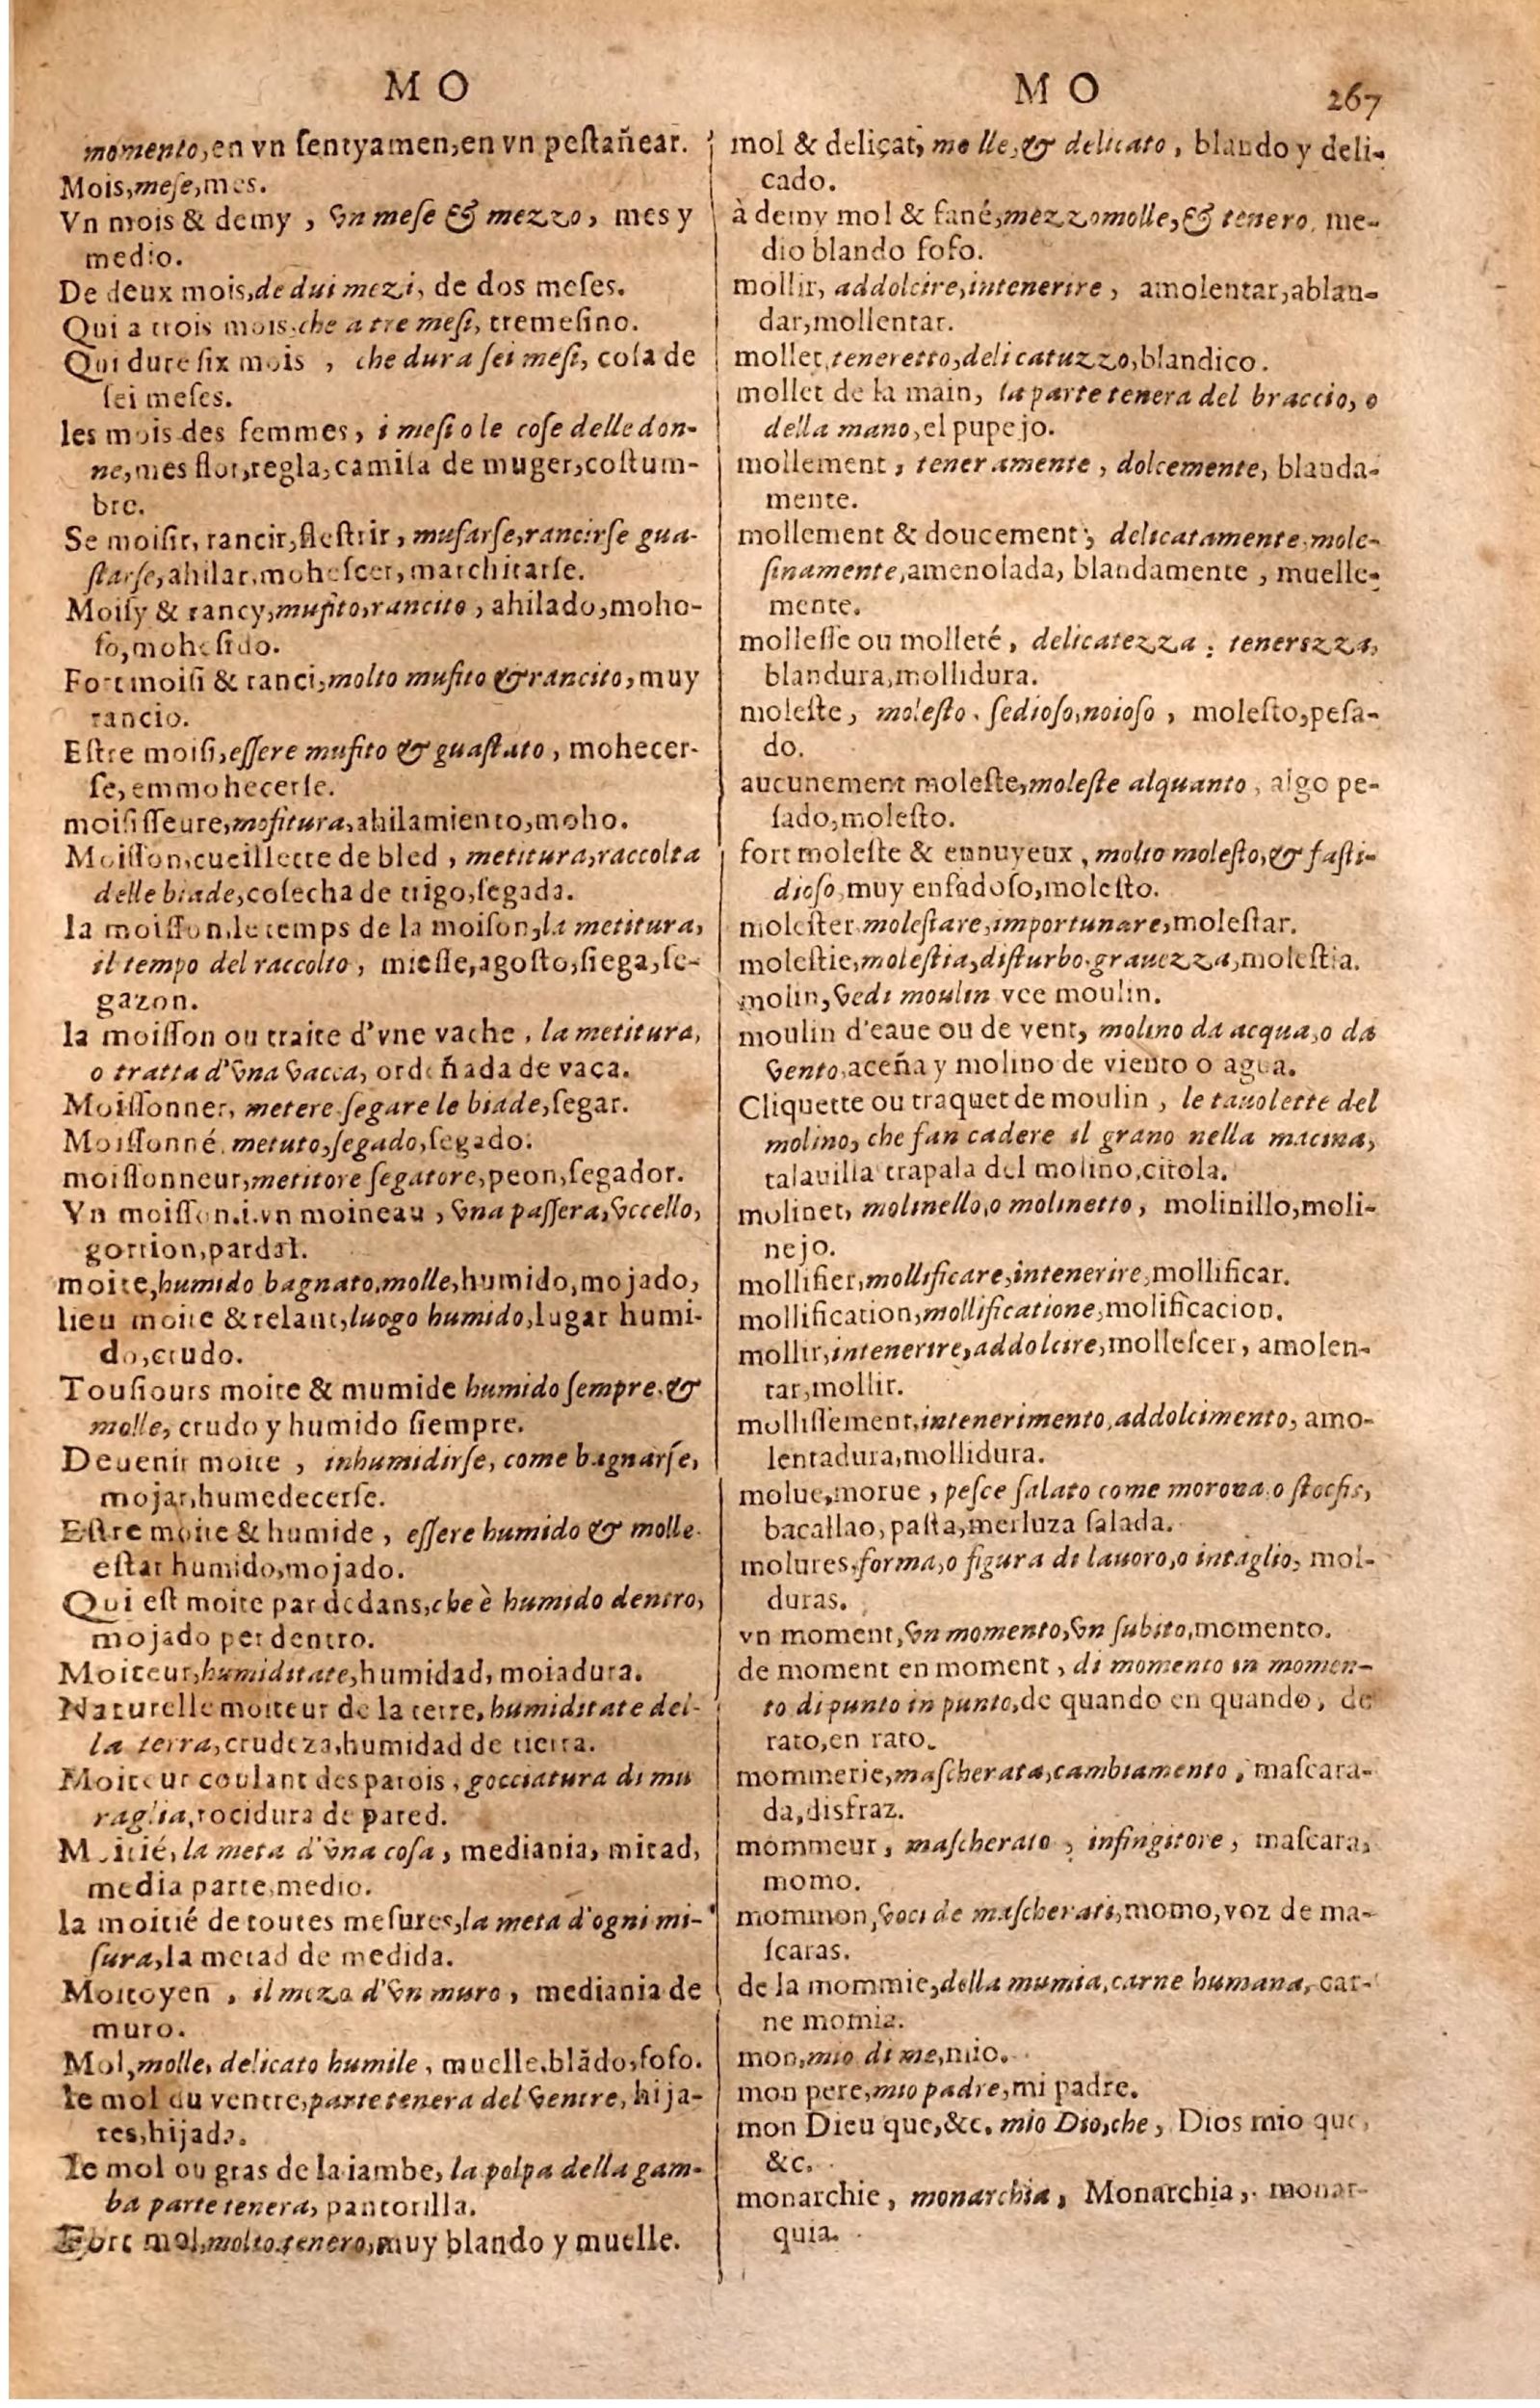 M O
momento, en vn sentyamen, en vn pestañear.
Mois, mese, mes.
Vn mois & demy , vn mese & mezzo, mes y
medio.
De deux mois, de dui mezi, de dos meses.
Qui a trois mois, che a tre mesi, tremesino.
Qui dure six mois , che dura sei mesi, cosa de
sei meses.
les mois des femmes, i mesi o le cose delle don-
ne, mes flor, regla, camisa de muger, costum-
bre.
Se moisir, rancir, flestrir, mufarse, rancirse gua-
starse, ahilar, mohescer, marchitarse.
Moisy & rancy, mufito, rancito, ahilado, moho-
so, mohesido.
Fort moisi & ranci, molto mufito & rancito, muy
rancio.
Estre moisi, essere mufito & guastato, mohecer-
se, emmohecerse.
moisisseure, mofitura, ahilamiento, moho.
Moisson, cueillette de bled , metitura, raccolta
delle biade, cosecha de trigo, segada.
la moisson, le temps de la moison, la metitura,
il tempo del raccolto, miesse, agosto, siega, se-
gazon.
la moisson ou traite d'vne vache, la metitura,
o tratta d'vna vacca, ordeñada de vaca.
Moissonner, metere segare le biade, segar.
Moissonné, metuto, segado, segado.
moissonneur, metitore segatore, peon, segador.
Vn moisson .i. vn moineau , vna passera, vccello,
gorrion, pardal.
moite, humido bagnato, molle, humido, mojado,
lieu moite & relant, luogo humido, lugar humi-
do, crudo.
Tousiours moite & mumide humido sempre, &
molle, crudo y humido siempre.
Deuenir moite , inhumidirse, come bagnarse,
mojar, humedecerse.
Estre moite & humide, essere humido & molle
estar humido, mojado.
Qui est moite par dedans, che è humido dentro,
mojado per dentro.
Moiteur, humiditate, humidad, moiadura.
Naturelle moiteur de la terre, humiditate del-
la terra, crudeza, humidad de tierra.
Moiteur coulant des parois, gocciatura di mu
raglia, rocidura de pared.
Moitié, la meta d'vna cosa, mediania, mitad,
media parte, medio.
la moitié de toutes mesures, la meta d'ogni mi-
sura, la metad de medida.
Moitoyen , il mezo d'vn muro, mediania de
muro.
Mol, molle, delicato humile, muelle, blãdo, fofo.
le mol du ventre, parte tenera del ventre, hija-
res, hijada.
le mol ou gras de la iambe, la polpa della gam-
ba parte tenera, pantorilla.
Fort mol, molto tenero, muy blando y muelle.
M O 267
mol & deliçat, molle, & delicato, blando y deli-
cado.
à demy mol & fané, mezzo molle, & tenero, me-
dio blando fofo.
mollir, addolcire, intenerire, amolentar, ablan-
dar, mollentar.
mollet, teneretto, delicatuzzo, blandico.
mollet de la main, la parte tenera del braccio, o
della mano, el pupejo.
mollement, teneramente, dolcemente, blanda-
mente.
mollement & doucement, delicatamente, mole-
sinamente, amenolada, blandamente, muelle-
mente.
mollesse ou molleté, delicatezza, tenerszza,
blandura, mollidura.
moleste, molesto, sedioso, noioso, molesto, pesa-
do.
aucunement moleste, moleste alquanto, algo pe-
sado, molesto.
fort moleste & ennuyeux, molto molesto, & fasti-
dioso, muy enfadoso, molesto.
molester, molestare, importunare, molestar.
molestie, molestia, disturbo, grauezza, molestia.
molin, vedi moulin vee moulin.
moulin d'eaue ou de vent, molino da acqua, o da
vento, aceña y molino de viento o agua.
Cliquette ou traquet de moulin, le tauolette del
molino, che fan cadere il grano nella macina,
talauilla trapala del molino, citola.
molinet, molinello, o molinetto, molinillo, moli-
nejo.
mollifier, mollificare, intenerire, mollificar.
mollification, mollificatione, molificacion.
mollir, intenerire, addolcire, mollescer, amolen-
tar, mollir.
mollissement, intenerimento, addolcimento, amo-
lentadura, mollidura.
molue, morue, pesce salato come morova o stocfis,
bacallao, pasta, merluza salada.
molures, forma, o figura di lauoro, o intaglio, mol-
duras.
vn moment, vn momento, vn subito, momento.
de moment en moment, di momento in momen-
to di punto in punto, de quando en quando, de
rato, en rato.
mommerie, mascherata, cambiamento, mascara-
da, disfraz.
mommeur, mascherato, infingitore, mascara,
momo.
mommon, voci de mascherati, momo, voz de ma-
scaras.
de la mommie, della mumia, carne humana, car-
ne momia.
mon, mio di me, mio.
mon pere, mio padre, mi padre.
mon Dieu que, &c. mio Dio, che, Dios mio que,
&c.
monarchie, monarchia, Monarchia, monar-
quia.